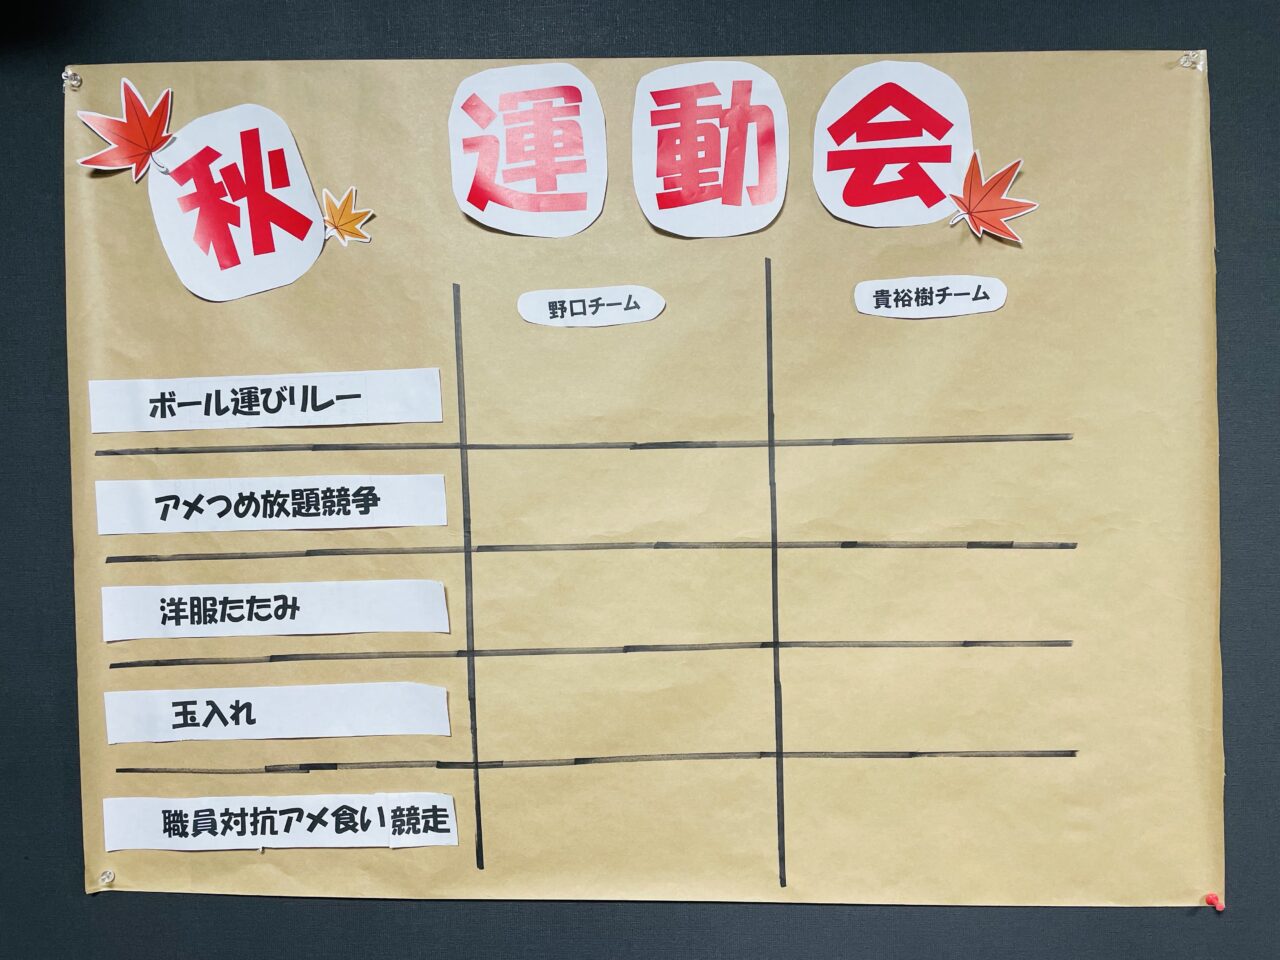 秋 運動会
野口チーム 貴裕樹チーム
ボール運びリレー
アメつめ放題競争
洋服たたみ
玉入れ
職員対抗アメ食い競走